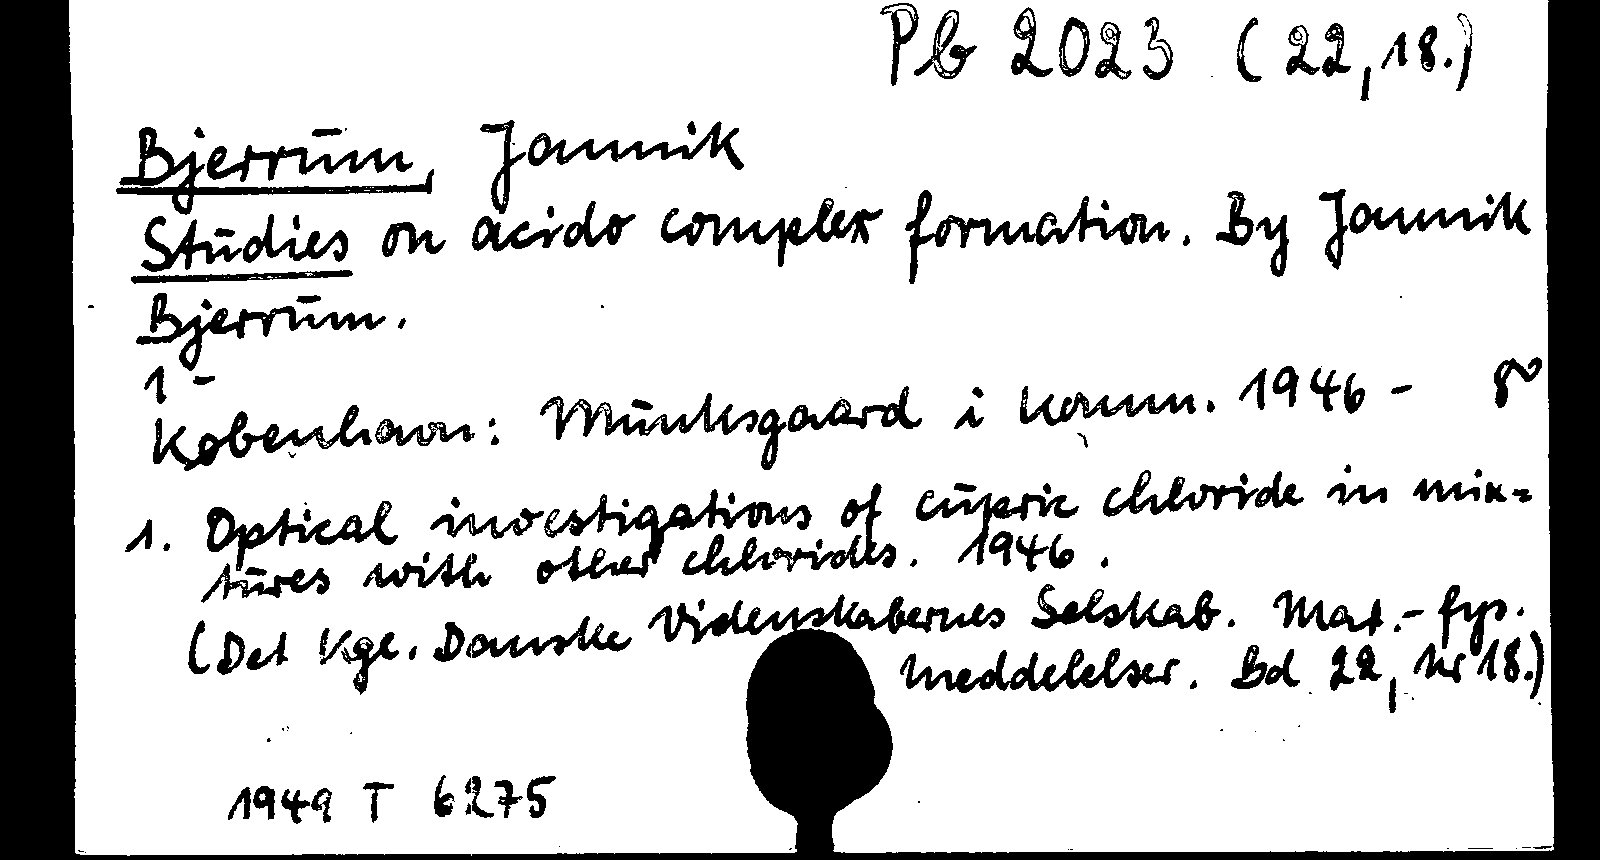 Pb 2023 (22,18.)
Bjerrum, Jannik
Studies on acido complex formation. By Jannik
Bjerrum.
1 -
København: Munksgaard i komm. 1946 - 8°
1. Optical investigations of cupric chloride in mix=
tures with other chlorides. 1946.
(Det Kgl. Danske Videnskabernes Selskab. Mat.-fys.
meddelelser. Bd 22, Nr 18.)
1949 T 6275